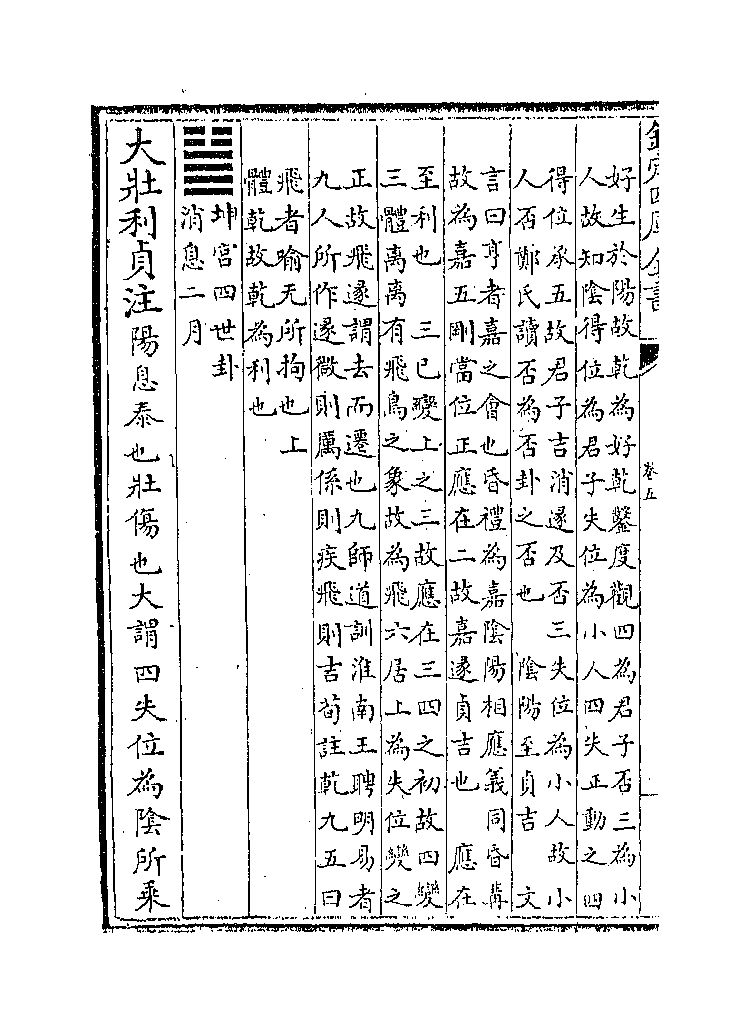 欽定四庫全書
卷五
好生於陽故乾為好乾鑿度觀四為君子否三為小
人故知陰得位為君子失位為小人四失正動之四
得位承五故君子吉消遂及否三失位為小人故小
人否鄭氏讀否為否卦之否也　陰陽至貞吉　文
言曰亨者嘉之會也昏禮為嘉陰陽相應義同昏冓
故為嘉五剛當位正應在二故嘉遂貞吉也　應在
至利也　三已變上之三故應在三四之初故四變
三體离离有飛鳥之象故為飛六居上為失位變之
正故飛遂謂去而遷也九師道訓淮南王聘明易者
九人所作遂㣲則厲係則疾飛則吉荀註乾九五曰
飛者喻无所拘也上
體乾故乾為利也
䷡坤宮四世卦
消息二月
大壯利貞注陽息泰也壯傷也大謂四失位為陰所乘